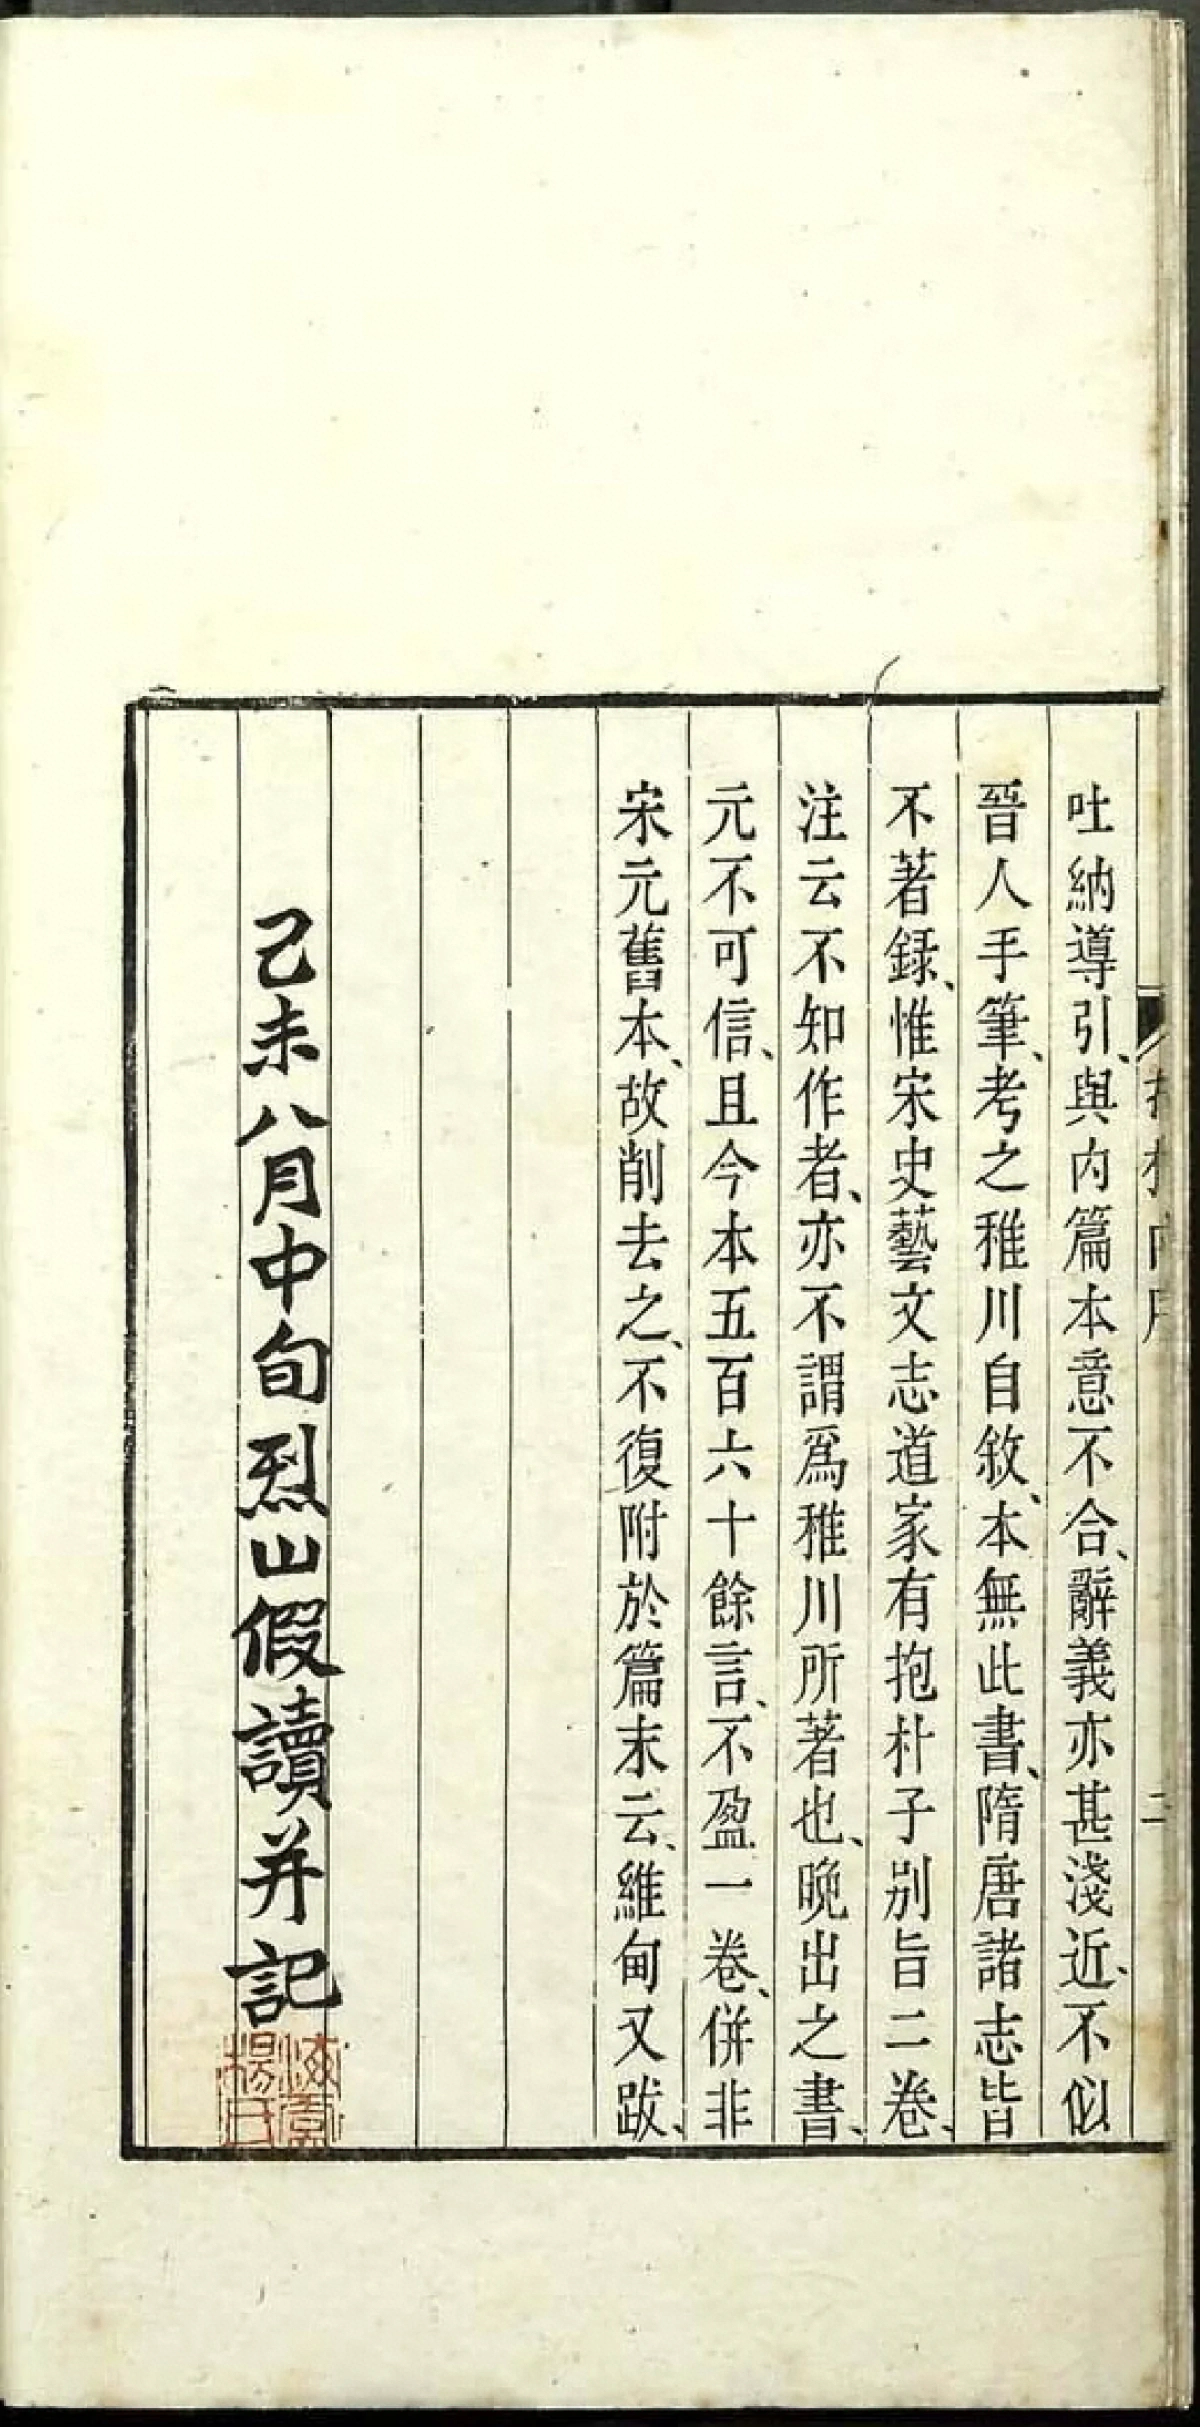 吐納導引、與內篇本意不合、辭義亦甚淺近、不似
晉人手筆、考之稚川自敘、本無此書、隋唐諸志皆
不著録、惟宋史藝文志道家有抱朴子别旨二卷、
注云不知作者、亦不謂爲稚川所著也、晚出之書、
元不可信、且今本五百六十餘言、不盈一卷、併非
宋元舊本、故削去之、不復附於篇末云、維甸又跋、
己未八月中旬烈山假讀并記
楊氏